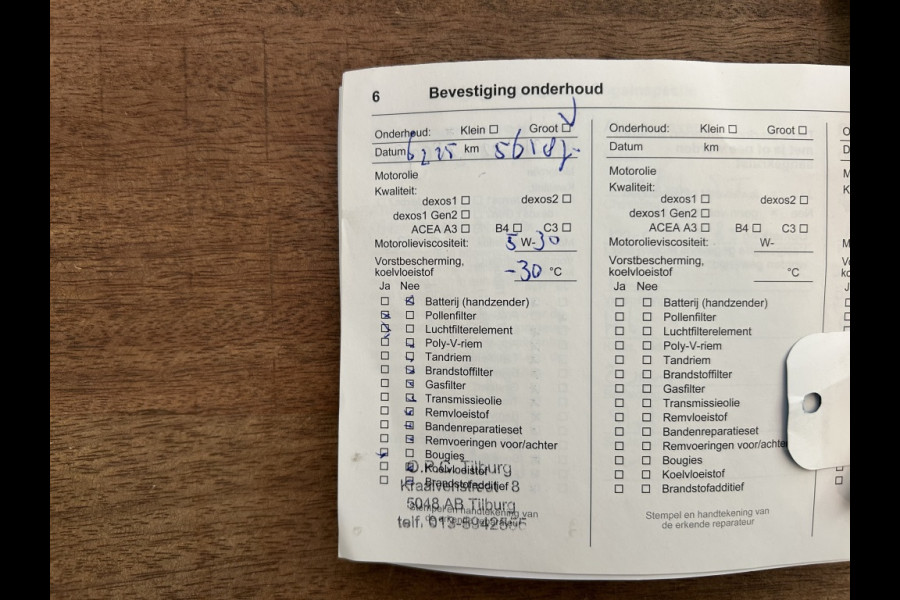 6 Bevestiging onderhoud
Onderhoud: Klein Groot
Datum km
Motorolie
Kwaliteit:
dexos1 dexos2
dexos1 Gen2
ACEA A3 B4 C3
Motorolieviscositeit: 5 W-30
Vorstbescherming,
koelvloeistof -30 °C
Ja Nee
Batterij (handzender)
Pollenfilter
Luchtfilterelement
Poly-V-riem
Tandriem
Brandstoffilter
Gasfilter
Transmissieolie
Remvloeistof
Bandenreparatieset
Remvoeringen voor/achter
Bougies
Koelvloeistof
Brandstofadditief
Tilburg
8
5048 AB Tilburg
Stempel en handtekening van
telf. 013-
Onderhoud: Klein Groot
Datum km
Motorolie
Kwaliteit:
dexos1 dexos2
dexos1 Gen2
ACEA A3 B4 C3
Motorolieviscositeit: W-
Vorstbescherming,
koelvloeistof °C
Ja Nee
Batterij (handzender)
Pollenfilter
Luchtfilterelement
Poly-V-riem
Tandriem
Brandstoffilter
Gasfilter
Transmissieolie
Remvloeistof
Bandenreparatieset
Remvoeringen voor/achter
Bougies
Koelvloeistof
Brandstofadditief
Stempel en handtekening van
de erkende reparateur